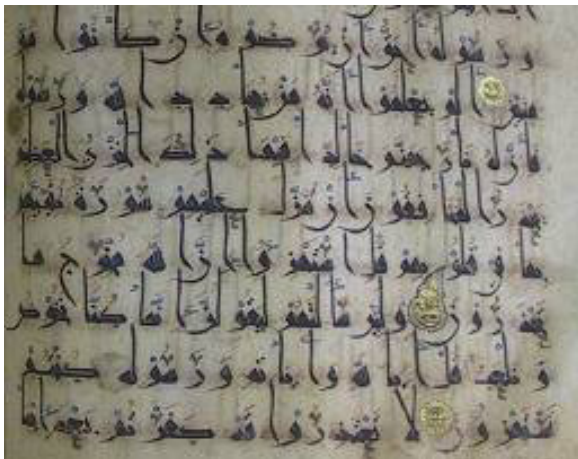 ورسوله احق ان يرضوه ان كانوا مؤ
منين الم يعلموا انه من يحادد الله ورسوله
فان له نار جهنم خالدا فيها ذلك الخزي العظيم
يحذر المنفقون ان تنزل عليهم سورة تنبئهم
بما في قلوبهم قل استهزوا ان الله مخرج ما
تحذرون ولئن سالتهم ليقولن انما كنا نخوض
ونلعب قل ابالله واياته ورسوله كنتم
تستهزون لا تعتذروا قد كفرتم بعد ايما